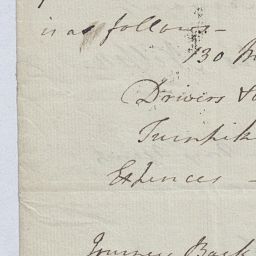 is as follows -
130 M
Drivers &
Turnpik
Expences -
Journey Back